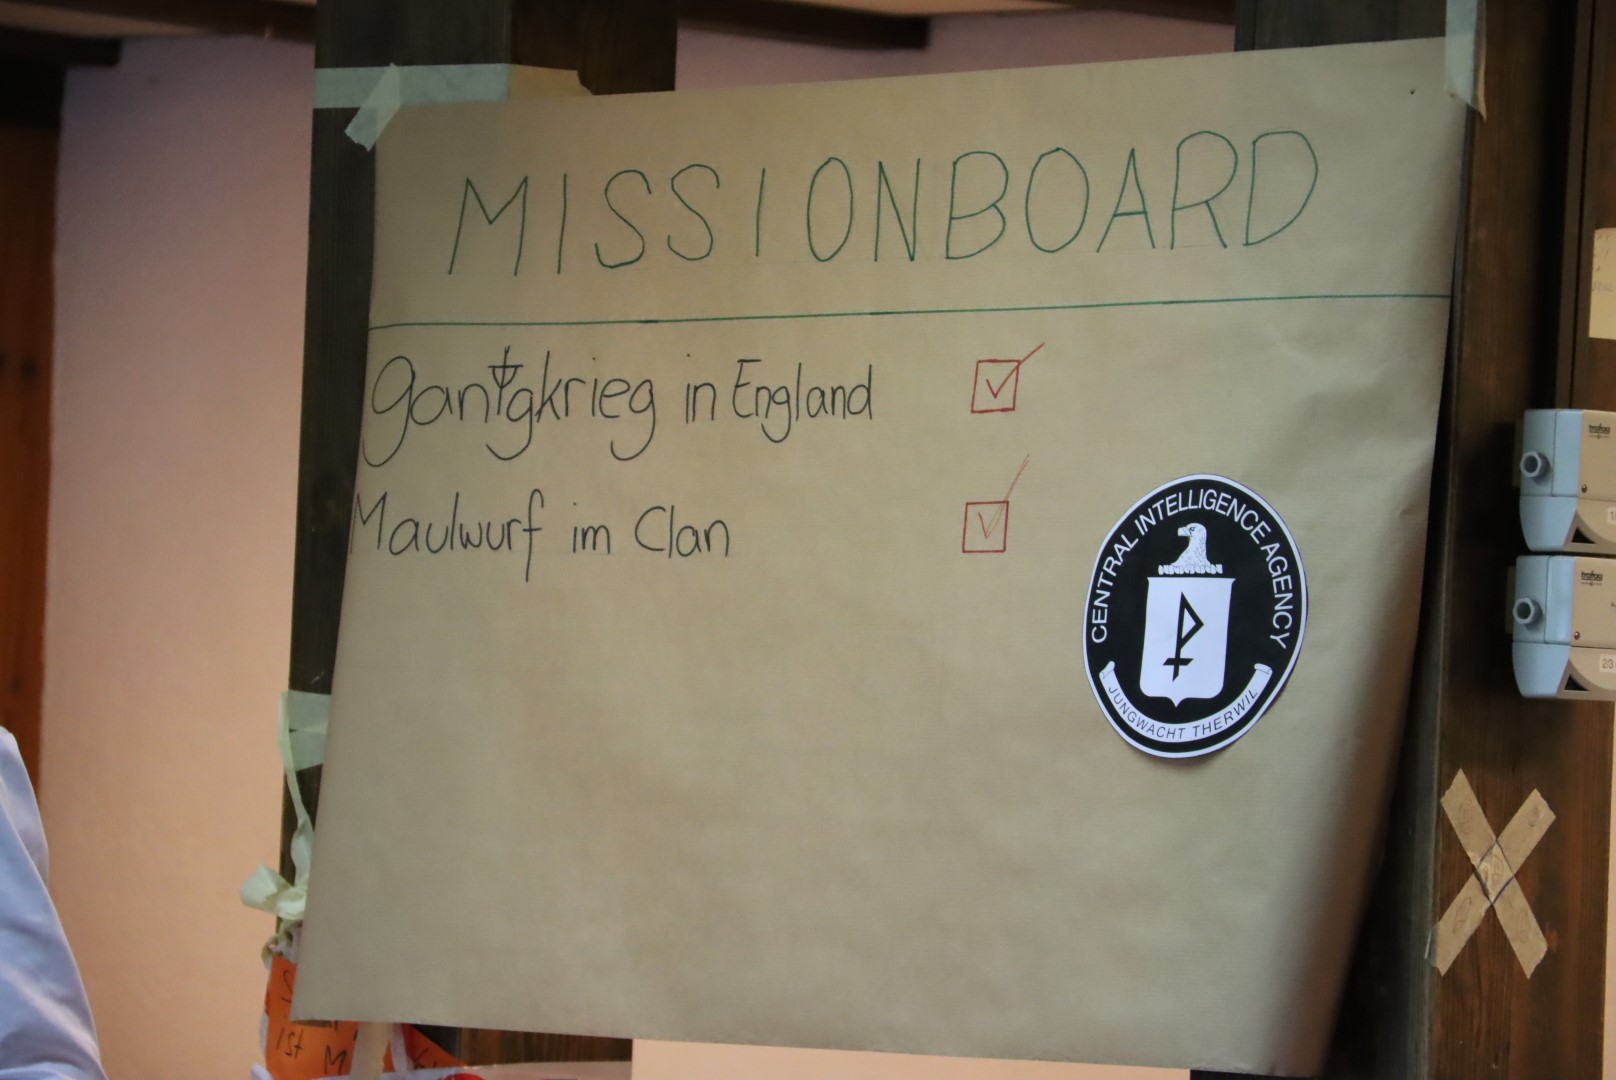 MISSIONBOARD
Gangkrieg in England
Maulwurf im Clan
CENTRAL INTELLIGENCE AGENCY
JUNGWACHT THERWIL
trafag
trafag
ist M